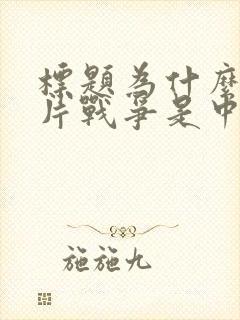 標題為什麼
片戰爭是中
施施九